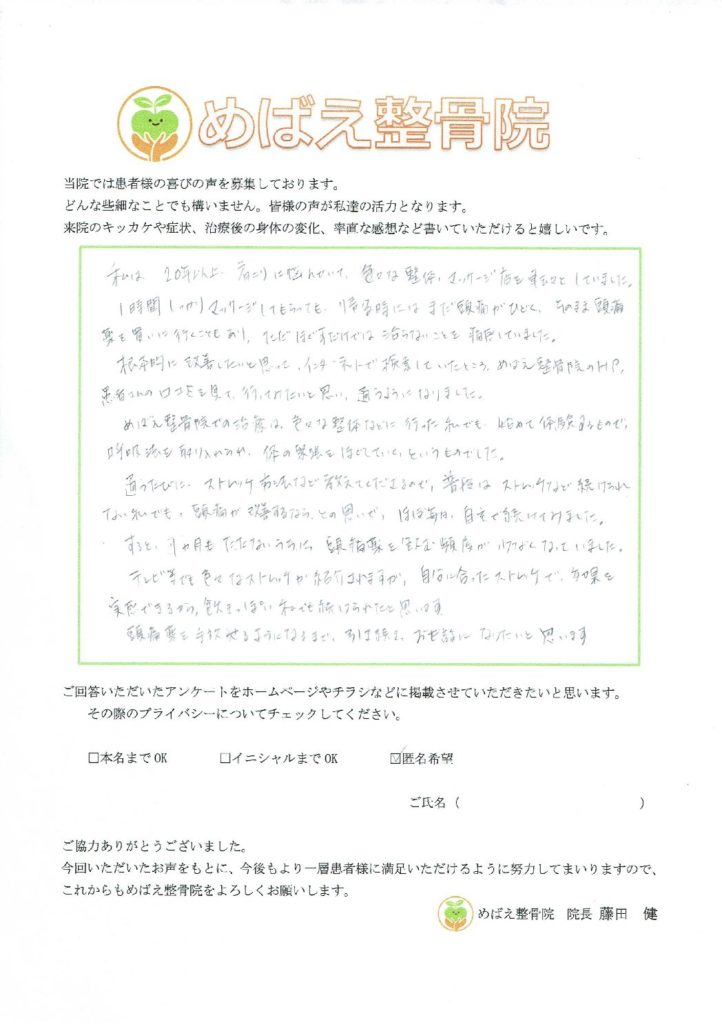 めばえ整骨院
当院では患者様の喜びの声を募集しております。
どんな些細なことでも構いません。皆様の声が私達の活力となります。
来院のキッカケや症状、治療後の身体の変化、率直な感想など書いていただけると嬉しいです。
私は 20年以上、肩こりに悩んでいて、色々な整体、マッサージ店を していました。
1時間しっかりマッサージしてもらっても、帰る時にはまだ頭痛がひどく、そのまま頭痛
薬を買いに行くこともあり、ただほぐすだけでは治らないことを痛感していました。
根本的に改善したいと思って、インターネットで検索していたところ、めばえ整骨院のHP、
患者さんの口コミを見て、行ってみたいと思い、通うようになりました。
めばえ整骨院での治療は、色々な整体などに行った私でも、始めて体験するもので、
呼吸法を取り入れながら、体の緊張をほぐしていくというものでした。
通うたびに、ストレッチ方法など教えてくださるので、普段はストレッチなど続けられ
ない私でも、頭痛が改善するなら、との思いで、ほぼ毎日、自宅で続けてみました。
すると、1ヶ月もたたないうちに、頭痛薬を飲む頻度が少なくなっていました。
テレビ等でも色々なストレッチが紹介されますが、自分に合ったストレッチで、効果を
実感できるから、飽きっぽい私でも続けられたと思います
頭痛薬を手放せるようになるまで、 お世話になりたいと思います
ご回答いただいたアンケートをホームページやチラシなどに掲載させていただきたいと思います。
その際のプライバシーについてチェックしてください。
□本名までOK □イニシャルまでOK ☑匿名希望
ご氏名（ ）
ご協力ありがとうございました。
今回いただいたお声をもとに、今後もより一層患者様に満足いただけるように努力してまいりますので、
これからもめばえ整骨院をよろしくお願いします。
めばえ整骨院 院長 藤田 健